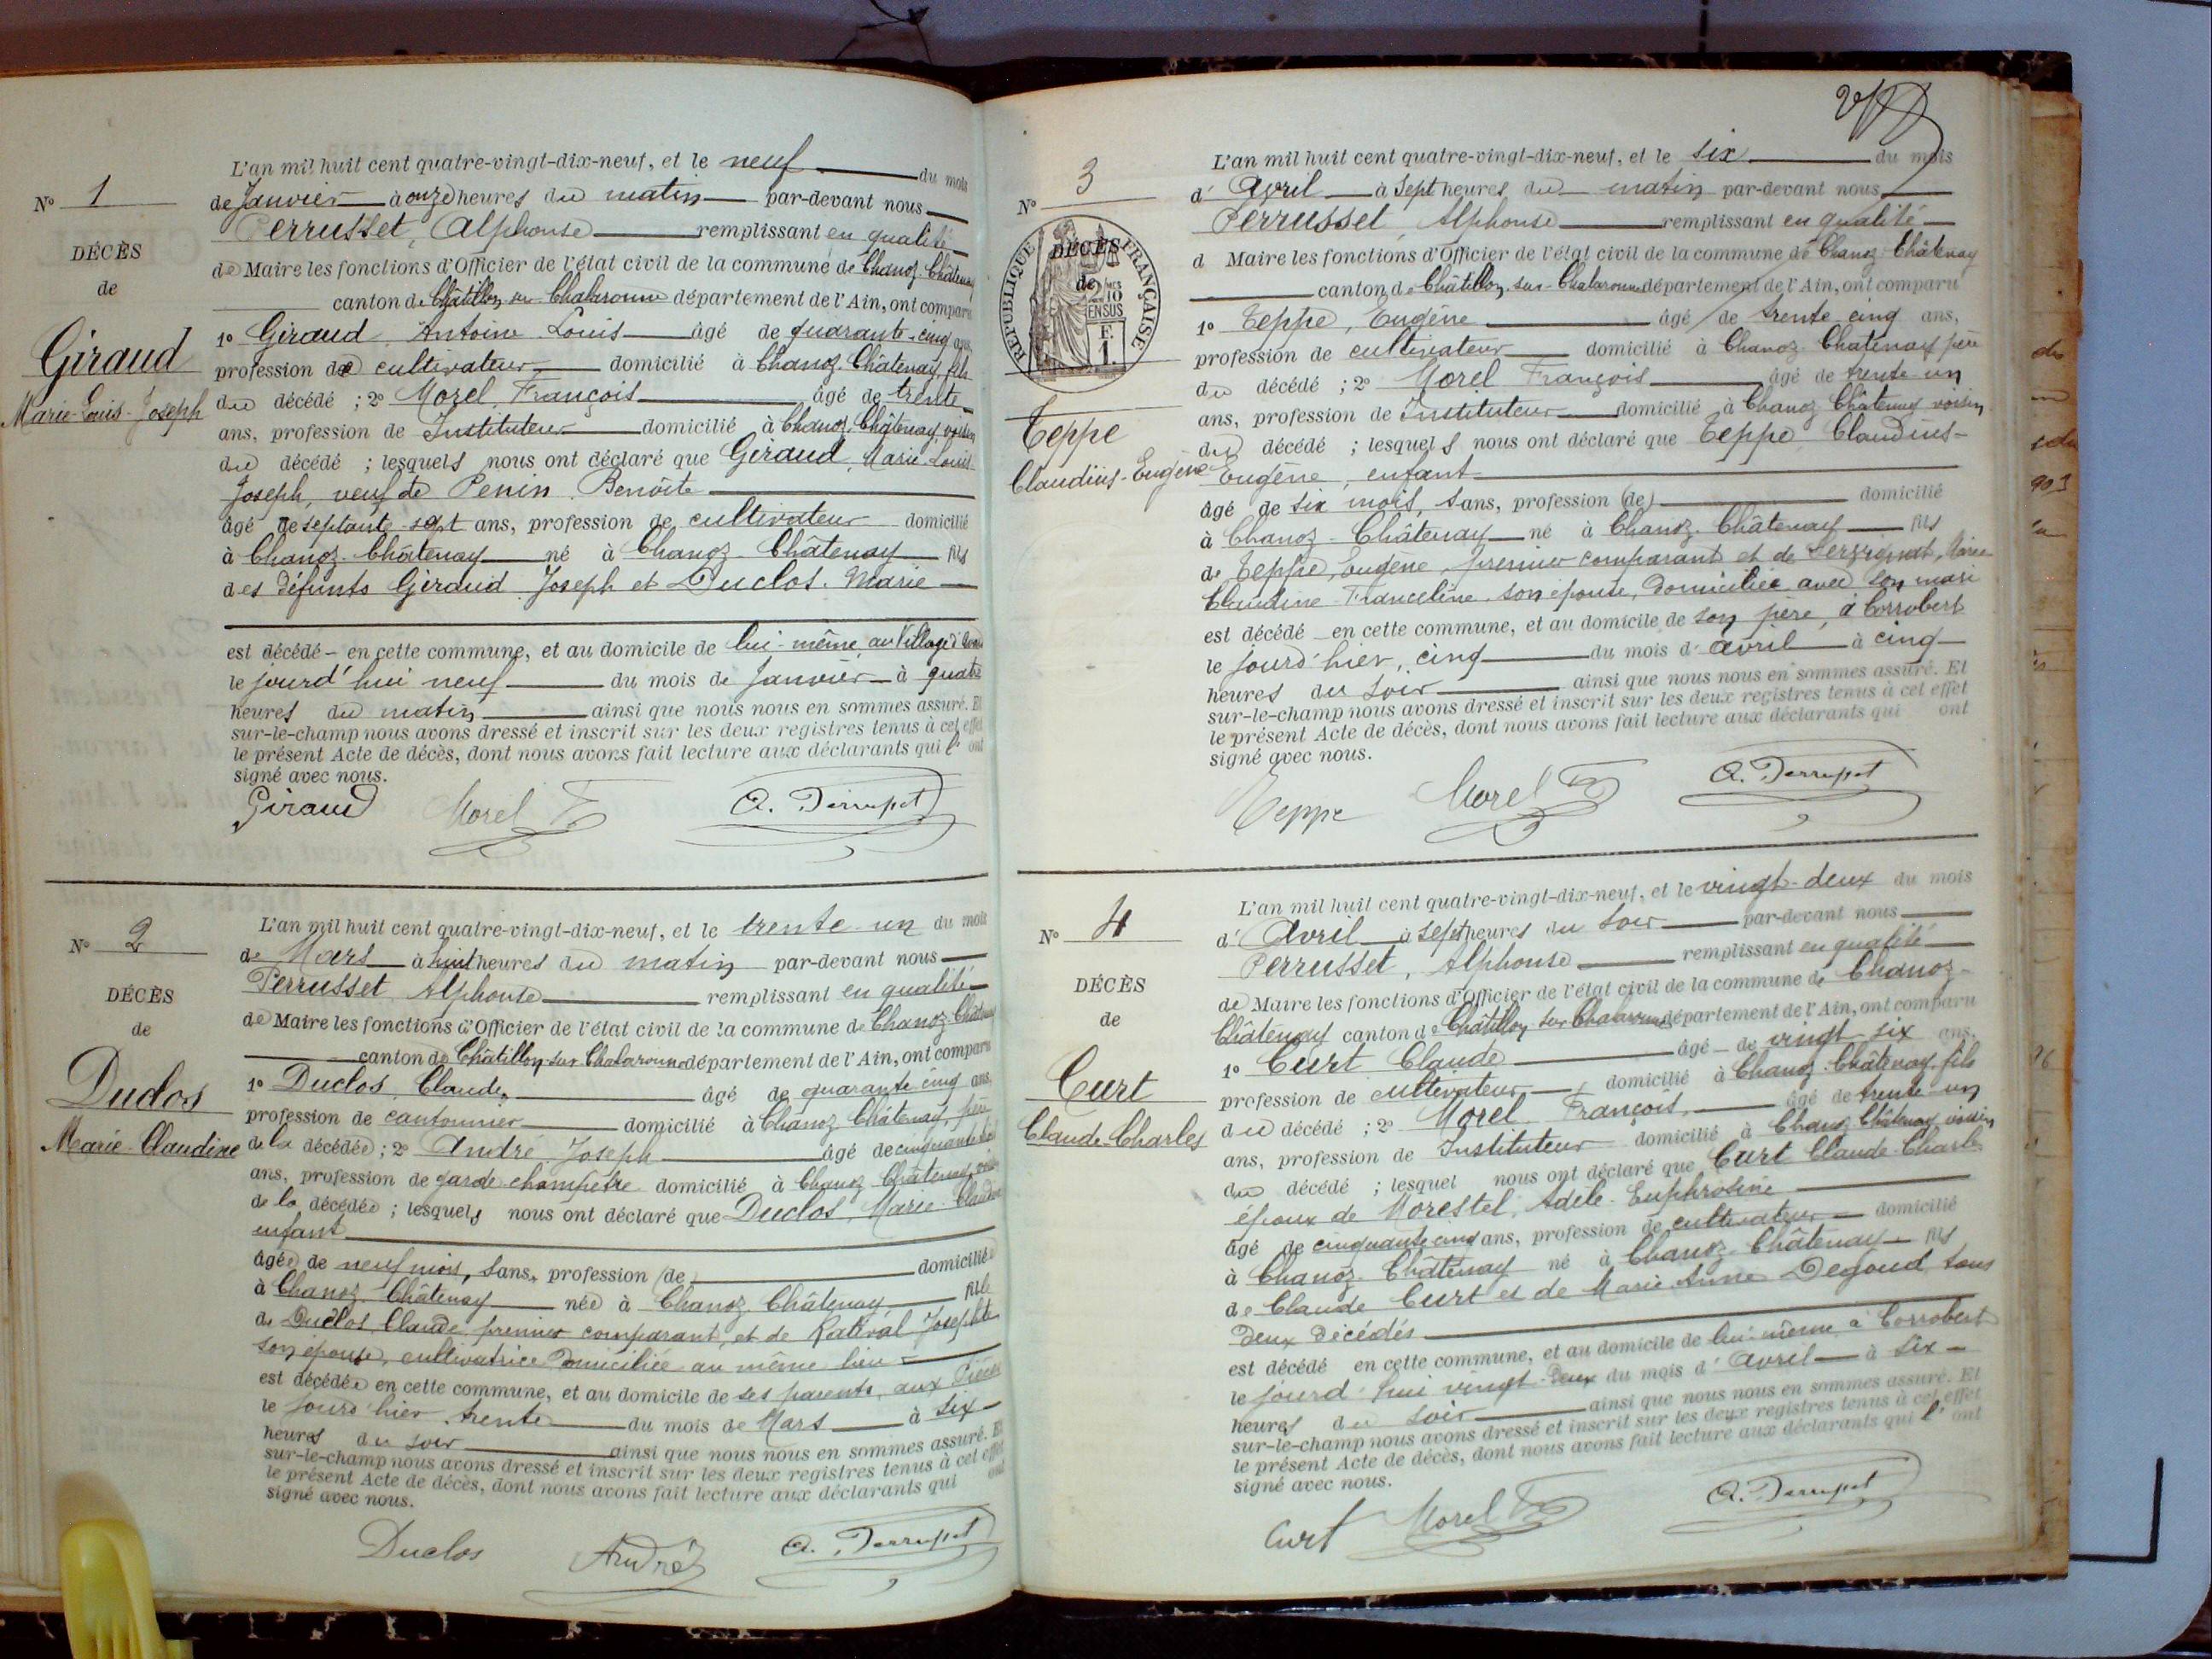 L'an mil huit cent quatre-vingt-dix-neuf, et le neuf du mois
de Janvier à onze heures du matin par-devant nous
Perrusset, Alphonse remplissant en qualité
de Maire les fonctions d'Officier de l'état civil de la commune de Chanoz-Châtenay
canton de Châtillon sur Chalaronne département de l'Ain, ont comparu
1º Giraud Antoine Louis âgé de quarante-cinq ans,
profession de cultivateur domicilié à Chanoz-Châtenay, fils
du décédé ; 2º Morel, François âgé de trente
ans, profession de Instituteur domicilié à Chanoz-Châtenay, voisin
du décédé ; lesquels nous ont déclaré que Giraud, Marie-Louis
Joseph, veuf de Penin Benoîte
âgé de septante-sept ans, profession de cultivateur domicilié
à Chanoz-Châtenay né à Chanoz-Châtenay fils
des défunts Giraud Joseph et Duclos Marie
est décédé en cette commune, et au domicile de lui-même, au Village
le jourd'hui neuf du mois de Janvier à quatre
heures du matin ainsi que nous nous en sommes assuré. Et
sur-le-champ nous avons dressé et inscrit sur les deux registres tenus à cet effet
le présent Acte de décès, dont nous avons fait lecture aux déclarants qui l'ont
signé avec nous.
Giraud Morel F A. Perrusset
Nº 1
DÉCÈS
de
Giraud
Marie-Louis-Joseph
Nº 2
DÉCÈS
de
Duclos
Marie-Claudine
L'an mil huit cent quatre-vingt-dix-neuf, et le trente-un du mois
de Mars à huit heures du matin par-devant nous
Perrusset Alphonse remplissant en qualité
de Maire les fonctions d'Officier de l'état civil de la commune de Chanoz-Châtenay
canton de Châtillon-sur-Chalaronne département de l'Ain, ont comparu
1º Duclos, Claude, âgé de quarante cinq ans,
profession de cantonnier domicilié à Chanoz-Châtenay, père
de la décédée ; 2º André Joseph âgé de
ans, profession de garde-champêtre domicilié à Chanoz-Châtenay, voisin
de la décédée ; lesquels nous ont déclaré que Duclos, Marie-Claudine
enfant
âgée de neuf mois, sans, profession (de) domiciliée
à Chanoz-Châtenay née à Chanoz-Châtenay fille
de Duclos, Claude premier comparant, et de Josephte
son épouse, cultivatrice domiciliée au même lieu
est décédée en cette commune, et au domicile de ses parents, aux
le jourd'hier, trente du mois de Mars à six
heures du soir ainsi que nous nous en sommes assuré. Et
sur-le-champ nous avons dressé et inscrit sur les deux registres tenus à cet effet
le présent Acte de décès, dont nous avons fait lecture aux déclarants qui ont
signé avec nous.
Duclos André A. Perrusset
Nº 3
RÉPUBLIQUE FRANÇAISE
DÉCÈS
de
Teppe
Claudius-Eugène
L'an mil huit cent quatre-vingt-dix-neuf, et le six du mois
d'Avril à sept heures du matin par-devant nous
Perrusset Alphonse remplissant en qualité
d Maire les fonctions d'Officier de l'état civil de la commune de Chanoz-Châtenay
canton de Châtillon-sur-Chalaronne département de l'Ain, ont comparu
1º Teppe, Eugène âgé de trente-cinq ans,
profession de cultivateur domicilié à Chanoz-Chatenay père
du décédé ; 2º Morel François âgé de trente-un
ans, profession de Instituteur domicilié à Chanoz-Châtenay voisin
du décédé ; lesquels nous ont déclaré que Teppe, Claudius-
Eugène, enfant
âgé de six mois, sans, profession (de) domicilié
à Chanoz-Châtenay né à Chanoz-Châtenay fils
de Teppe, Eugène, premier comparant et de Marie
Claudine-Franceline, son épouse, domiciliée avec son mari
est décédé en cette commune, et au domicile de son père, à Corrobert
le jourd'hier, cinq du mois d'avril à cinq
heures du soir ainsi que nous nous en sommes assuré. Et
sur-le-champ nous avons dressé et inscrit sur les deux registres tenus à cet effet
le présent Acte de décès, dont nous avons fait lecture aux déclarants qui ont
signé avec nous.
Teppe Morel F A. Perrusset
Nº 4
DÉCÈS
de
Curt
Claude-Charles
L'an mil huit cent quatre-vingt-dix-neuf, et le vingt-deux du mois
d'Avril à sept heures du soir par-devant nous
Perrusset, Alphonse remplissant en qualité
de Maire les fonctions d'Officier de l'état civil de la commune de Chanoz-
Châtenay canton de Châtillon sur Chalaronne département de l'Ain, ont comparu
1º Curt Claude âgé de vingt-six ans,
profession de cultivateur, domicilié à Chanoz-Châtenay, fils
du décédé ; 2º Morel François, âgé de trente-un
ans, profession de Instituteur domicilié à Chanoz-Châtenay, voisin
du décédé ; lesquel nous ont déclaré que Curt Claude-Charles
époux de Morestel, Adèle-Euphrosine
âgé de cinquante cinq ans, profession de cultivateur domicilié
à Chanoz-Châtenay né à Chanoz-Châtenay fils
de Claude Curt et de Marie-Anne Degoud, tous
deux décédés
est décédé en cette commune, et au domicile de lui-même, à Corrobert
le jourd'hui vingt-deux du mois d'Avril à six
heures du soir ainsi que nous nous en sommes assuré. Et
sur-le-champ nous avons dressé et inscrit sur les deux registres tenus à cet effet
le présent Acte de décès, dont nous avons fait lecture aux déclarants qui l'ont
signé avec nous.
Curt Morel F A. Perrusset